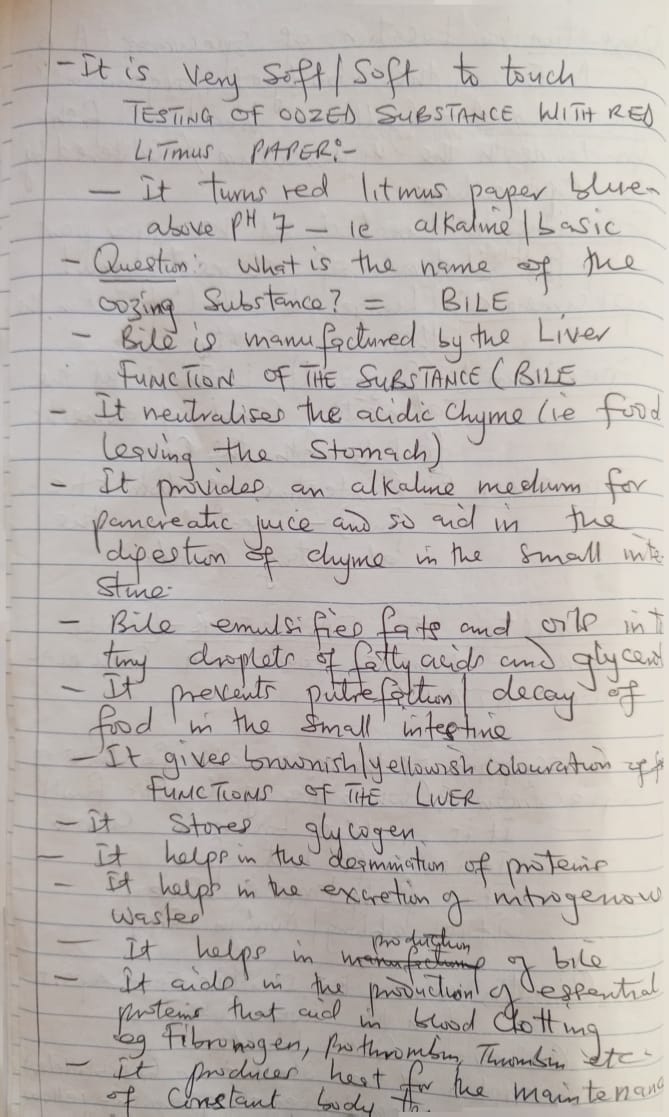 - It is very soft/soft to touch
TESTING OF OOZED SUBSTANCE WITH RED
LITMUS PAPER:-
- It turns red litmus paper blue
above PH 7 - ie alkaline/basic
- Question: What is the name of the
oozing Substance? = BILE
- Bile is manufactured by the Liver
FUNCTION OF THE SUBSTANCE (BILE
- It neutralises the acidic chyme (ie food
leaving the stomach)
- It provides an alkaline medium for
pancreatic juice and so aid in the
digestion of chyme in the small inte
stine.
- Bile emulsifies fats and oils int
tiny droplets of fatty acids and glycerol
- It prevents putrefaction/decay of
food in the small intestine
- It gives brownish/yellowish colouration
FUNCTIONS OF THE LIVER
- It Stores glycogen
- It helps in the deamination of proteins
- It helps in the excretion of nitrogenous
wastes
- It helps in production of bile
- It aids in the production of essential
proteins that aid in blood clotting
eg Fibronogen, Prothrombin, Thrombin etc.
- It produces heat for the maintenanc
of constant body